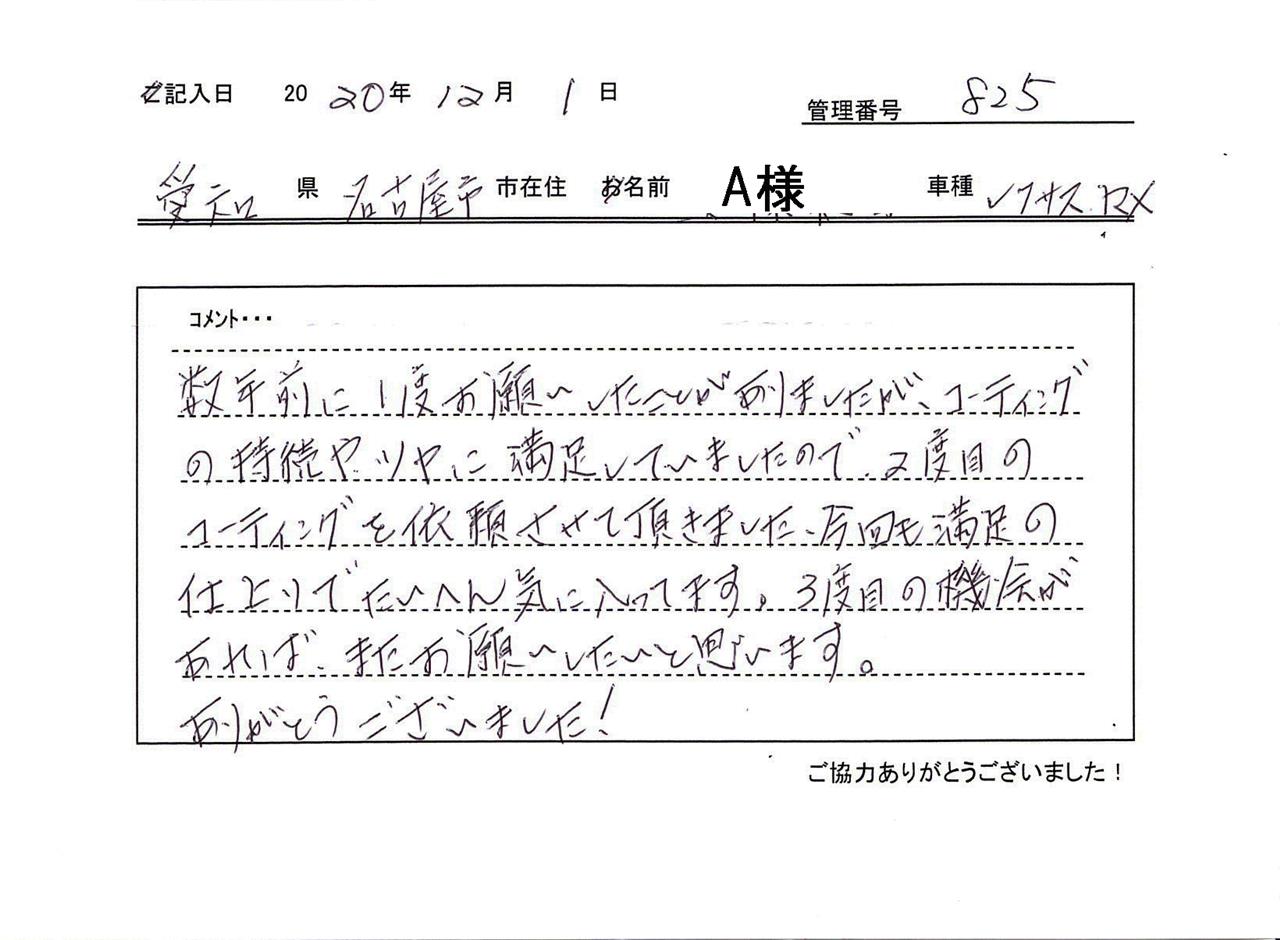 ご記入日 2020年 12月 1日
管理番号 825
愛知県 名古屋市市在住 お名前 A様 車種 レクサス.RX
コメント・・・
数年前に1度お願いしたことがありましたが、コーティング
の持続や、ツヤに満足していましたので、2度目の
コーティングを依頼させて頂きました、今回も満足の
仕上りでたいへん気に入ってます。3度目の機会が
あれば、またお願いしたいと思います。
ありがとうございました!
ご協力ありがとうございました!